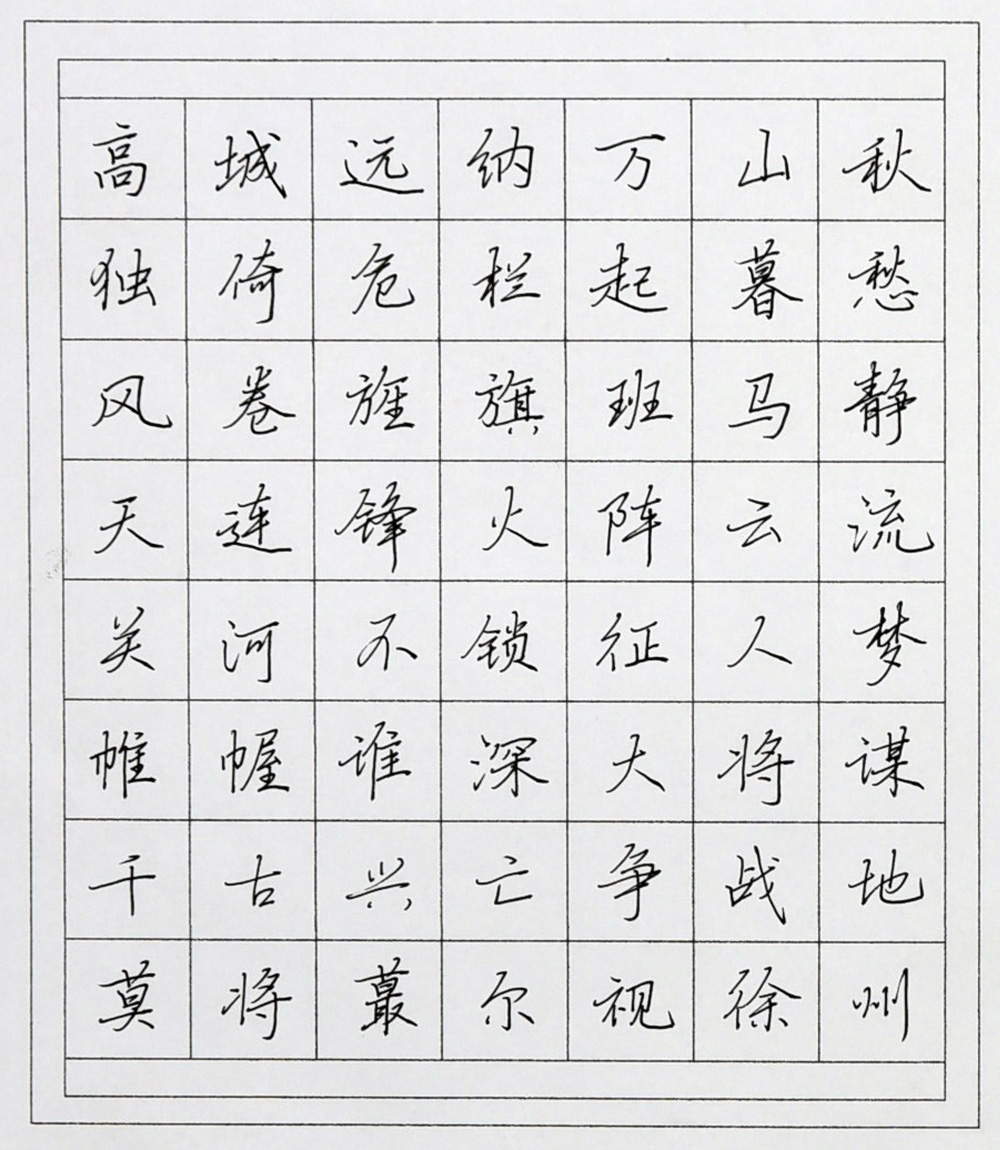 高城远纳万山秋
独倚危栏起暮愁
风卷旌旗班马静
天连锋火阵云流
关河不锁征人梦
帷幄谁深大将谋
千古兴亡争战地
莫将蕞尔视徐州